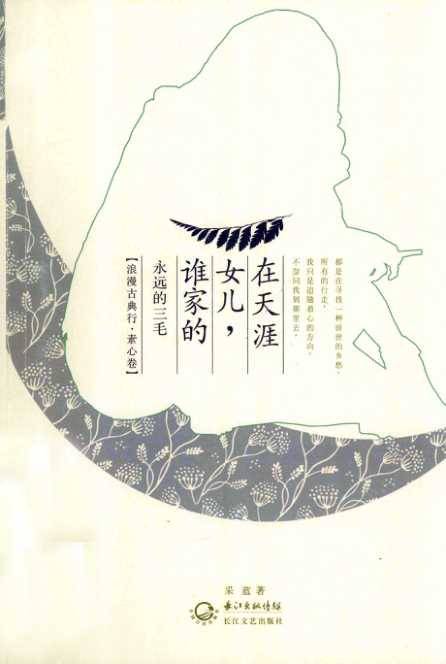 【浪漫古典行·素心卷】
永远的三毛
谁家的
女儿，
在天涯
不要问我到那里去，
我只是追随着心的方向。
所有的行走，
都是在寻找一种前世的乡愁。
采蓝著
长江出版传媒
长江文艺出版社